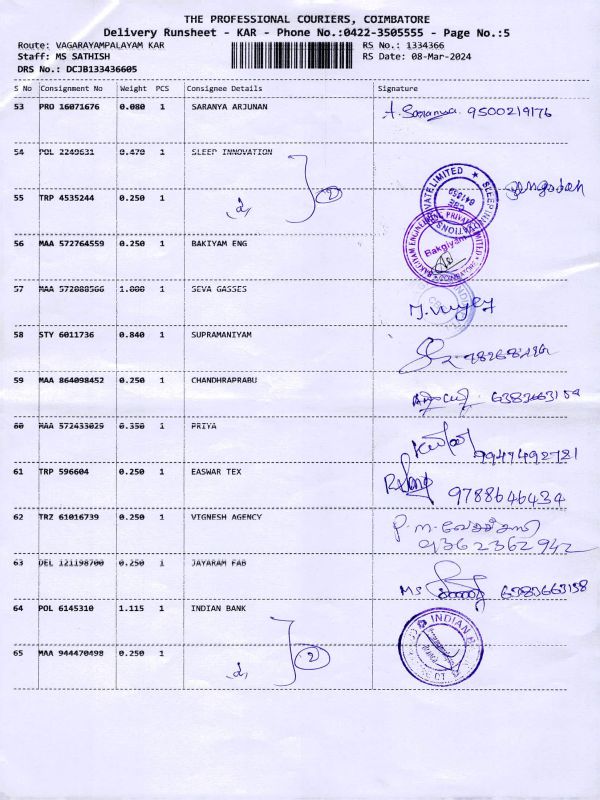 THE PROFESSIONAL COURIERS, COIMBATORE
Delivery Runsheet - KAR - Phone No.:0422-3505555 - Page No.:5
Route: VAGARAYAMPALAYAM KAR RS No.: 1334366
Staff: MS SATHISH RS Date: 08-Mar-2024
DRS No.: DCJB133436605
S No Consignment No Weight PCS Consignee Details Signature
53 PRO 16071676 0.080 1 SARANYA ARJUNAN A. Saranya 9500219176
54 POL 2249631 0.470 1 SLEEP INNOVATION
55 TRP 4535244 0.250 1 2
56 MAA 572764559 0.250 1 BAKIYAM ENG Bakgiyam
57 MAA 572088566 1.000 1 SEVA GASSES
58 STY 6011736 0.840 1 SUPRAMANIYAM
59 MAA 864098452 0.250 1 CHANDHRAPRABU
60 MAA 572433029 0.350 1 PRIYA 9947492781
61 TRP 596604 0.250 1 EASWAR TEX 9788646434
62 TRZ 61016739 0.250 1 VIGNESH AGENCY 9362362942
63 DEL 121198700 0.250 1 JAYARAM FAB Ms
64 POL 6145310 1.115 1 INDIAN BANK INDIAN
65 MAA 944470498 0.250 1 2